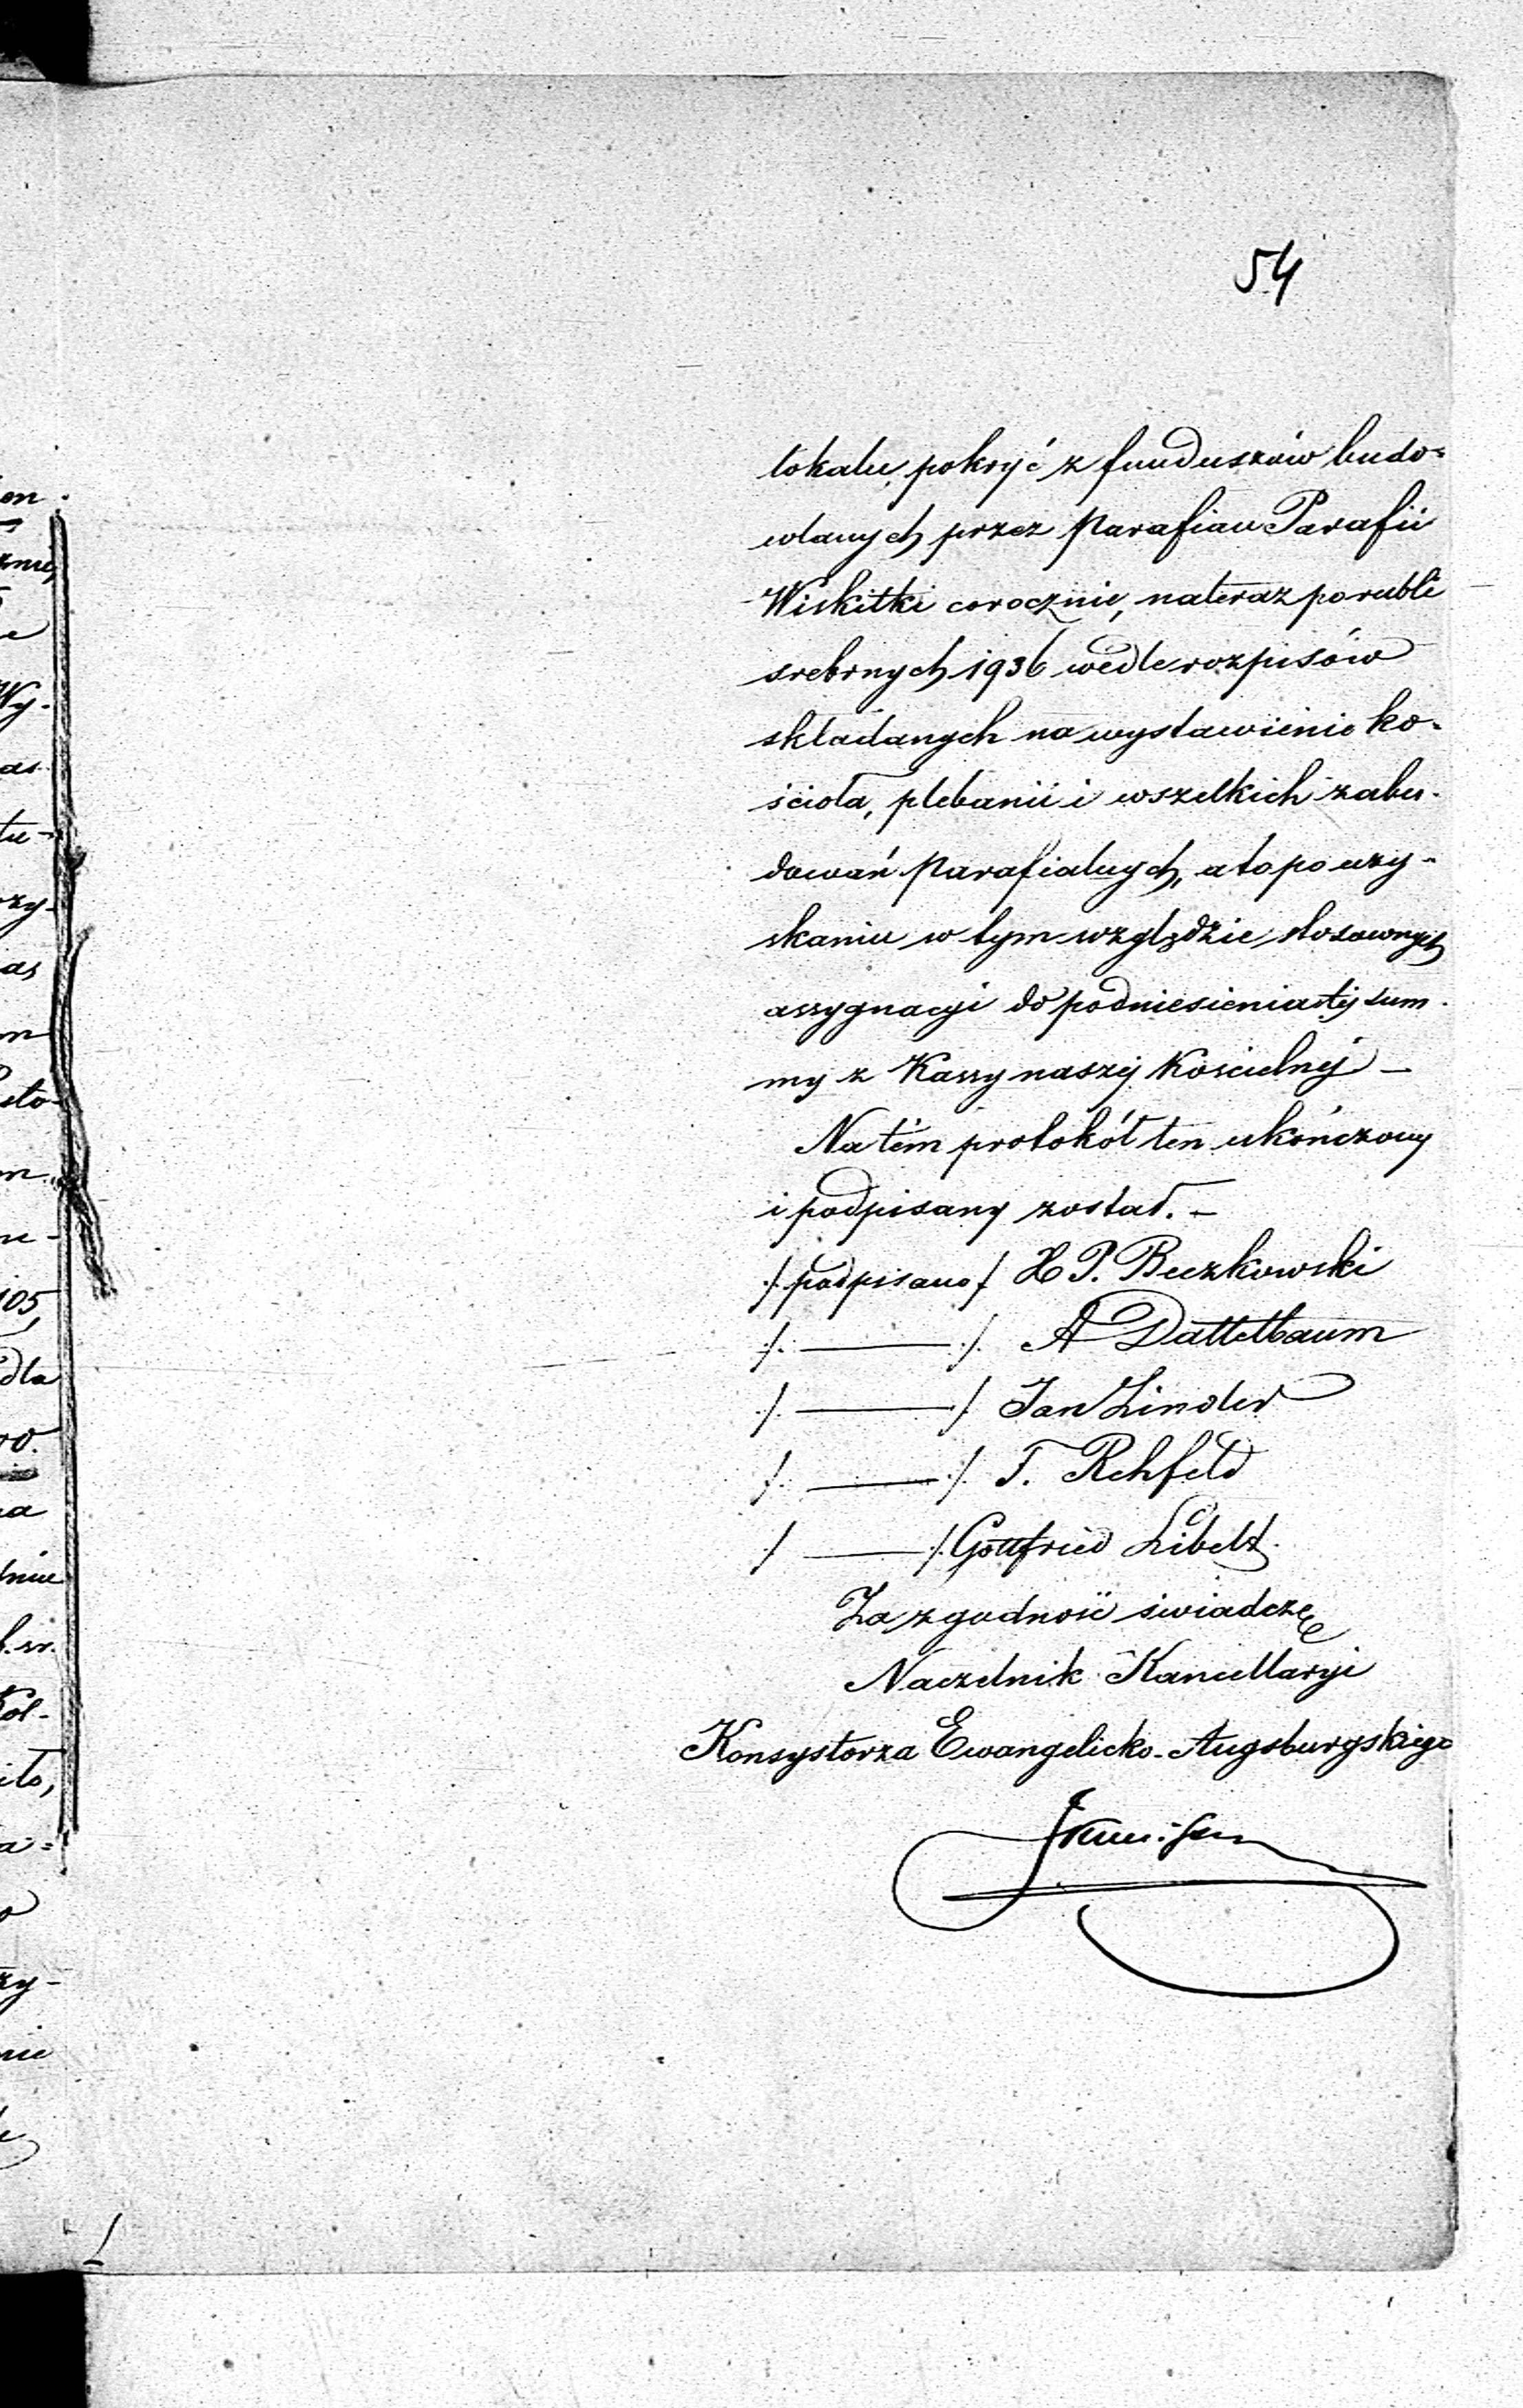 54
lokalu, pokryć z funduszów budo=
wlanych przez Parafian Parafii
Wiskitki corocznie, nateraz po rubli
srebrnych 1936 wedle rozpisów
składanych na wystawienie ko-
ścioła, plebanii i wszelkich zabu-
dowań Parafialnych, a to po uzy-
skaniu w tym względzie stosownych
assygnacyi do podniesienia téj sum-
my z Kassy naszéj Kościelnéj —
Na tém protokół ten ukończony
i podpisany został. —
/podpisano/ H P. Buczkowski
/. ——— /. A Dattelbaum
/. ——— ./ Jan Linder
/. ——— ./. T. Rehfeld
/ ——— /. Gottfried Libelt.
Za zgodność świadczę
Naczelnik Kancellaryi
Konsystorza Ewangelicko-Augsburgskiego